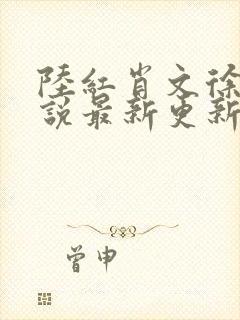 陸紅肖文徐
說最新更新
曾申